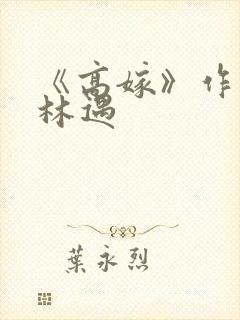 《高嫁》作
林遇
葉永烈